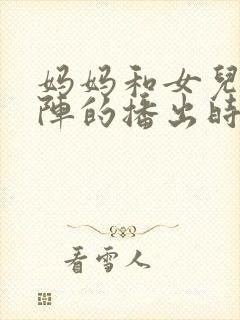 妈妈和女兒
陣的播出時
看雪人